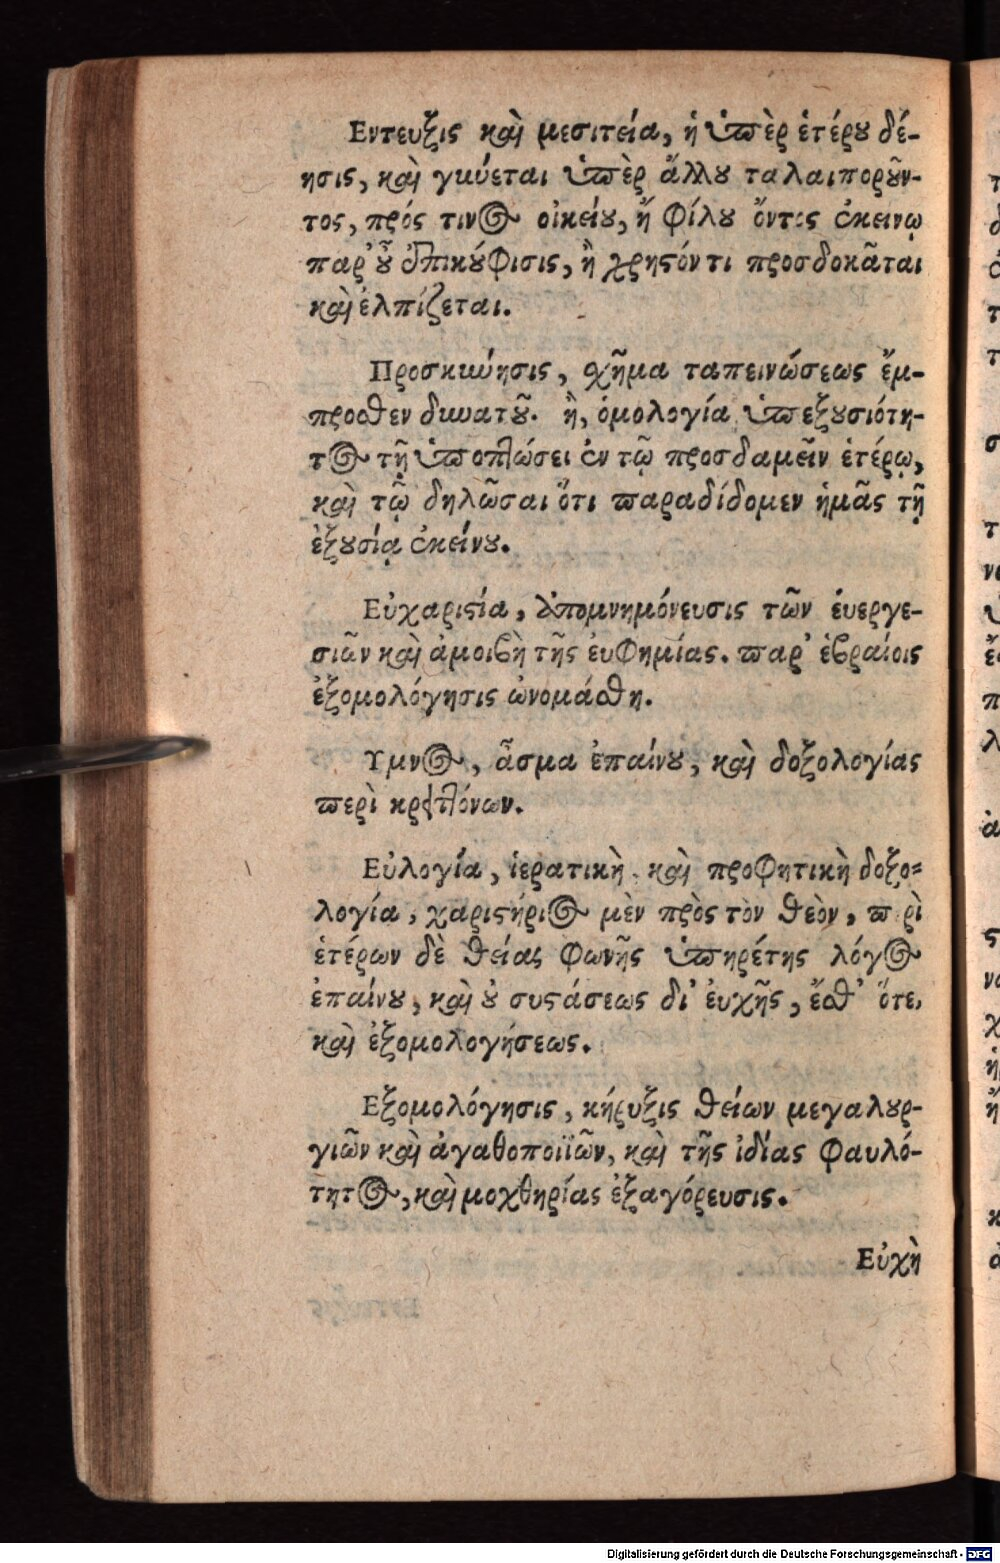 Εντευξις καὶ μεσιτεία, ἡ ὑπὲρ ἑτέρου δέ-
ησις, καὶ γινέεται ὑπὲρ ἄλλου ταλαιπορούν-
τος, πρός τινος οἰκείου, ἢ φίλου ὄντος ἐκεινῳ
παρ' οὗ ἐπικούφισις, ἢ χρηστόν τι προσδοκᾶται
καὶ ἐλπίζεται.
Προσκυνήησις, σχῆμα ταπεινώσεως ἔμ-
προσθεν δυνατοῦ. ἢ, ὁμολογία ὑπεξουσιότη-
τος τῇ ὑποπτώσει ἐν τῷ προσδαμεῖν ἑτέρῳ,
καὶ τῷ δηλῶσαι ὅτι παραδίδομεν ἡμᾶς τῇ
ἐξουσίᾳ ἐκείνου.
Εὐχαριστία, ἀπομνημόνευσις τῶν ἐυεργε-
σιῶν καὶ ἀμοιβὴ τῆς ἐυφημίας. παρ' ἑβραίοις
ἐξομολόγησις ὠνομάσθη.
Υμνος, ἆσμα ἐπαίνου, καὶ δοξολογίας
περὶ κρειττόνων.
Εὐλογία, ἱερατικὴ καὶ προφητικὴ δοξο-
λογία, χαριστήριος μὲν πρὸς τὸν θεὸν, περὶ
ἑτέρων δὲ θείας φωνῆς ὑπηρέτης λόγος
ἐπαίνου, καὶ οὐ συστάσεως δι' ἐυχῆς, ἔσθ' ὅτε,
καὶ ἐξομολογήσεως.
Εξομολόγησις, κήρυξις θείων μεγαλουρ-
γιῶν καὶ ἀγαθοποιϊῶν, καὶ τῆς ἰδίας φαυλό-
τητος, καὶ μοχθηρίας ἐξαγόρευσις.
Εὐχὴ
Digitalisierung gefördert durch die Deutsche Forschungsgemeinschaft - DFG